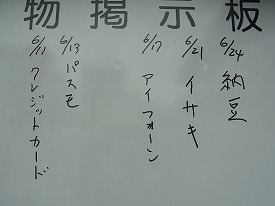 物掲示板
6/24 納豆
6/21 イサキ
6/17 アイフォーン
6/13 パスモ
6/11 クレジットカード